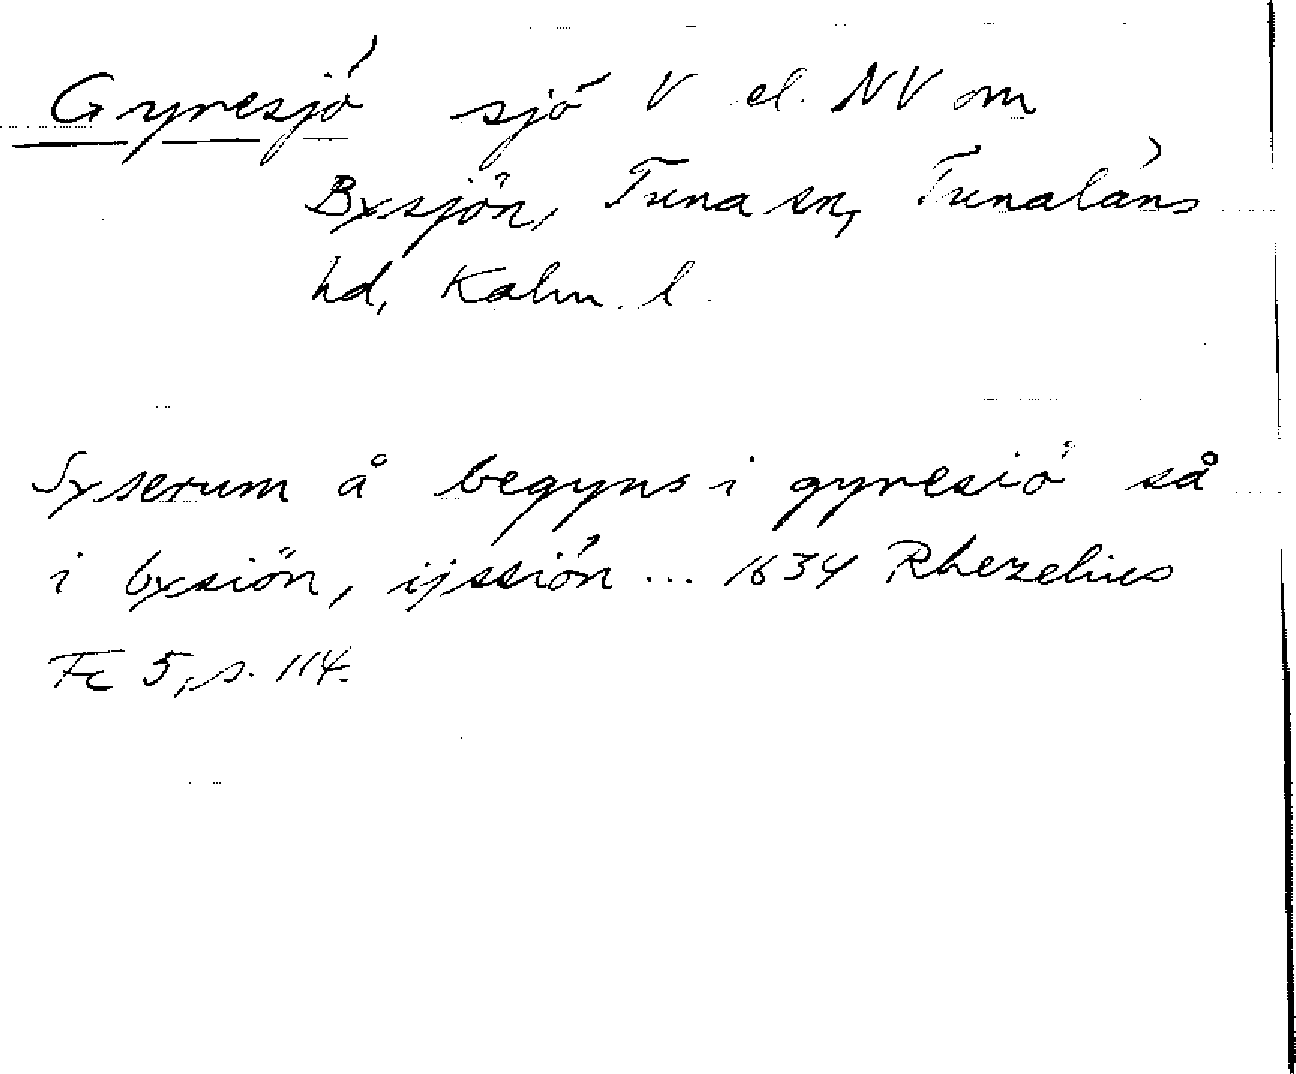 Gyresjö sjö V el. NV om
Byxsjön, Tuna sn, Tunaläns
hd, Kalm. l.
Syserum å begyns i gyresiö så
i byxsiön, ijssiön ... 1634 Rhezelius
Fc 5, s. 114.